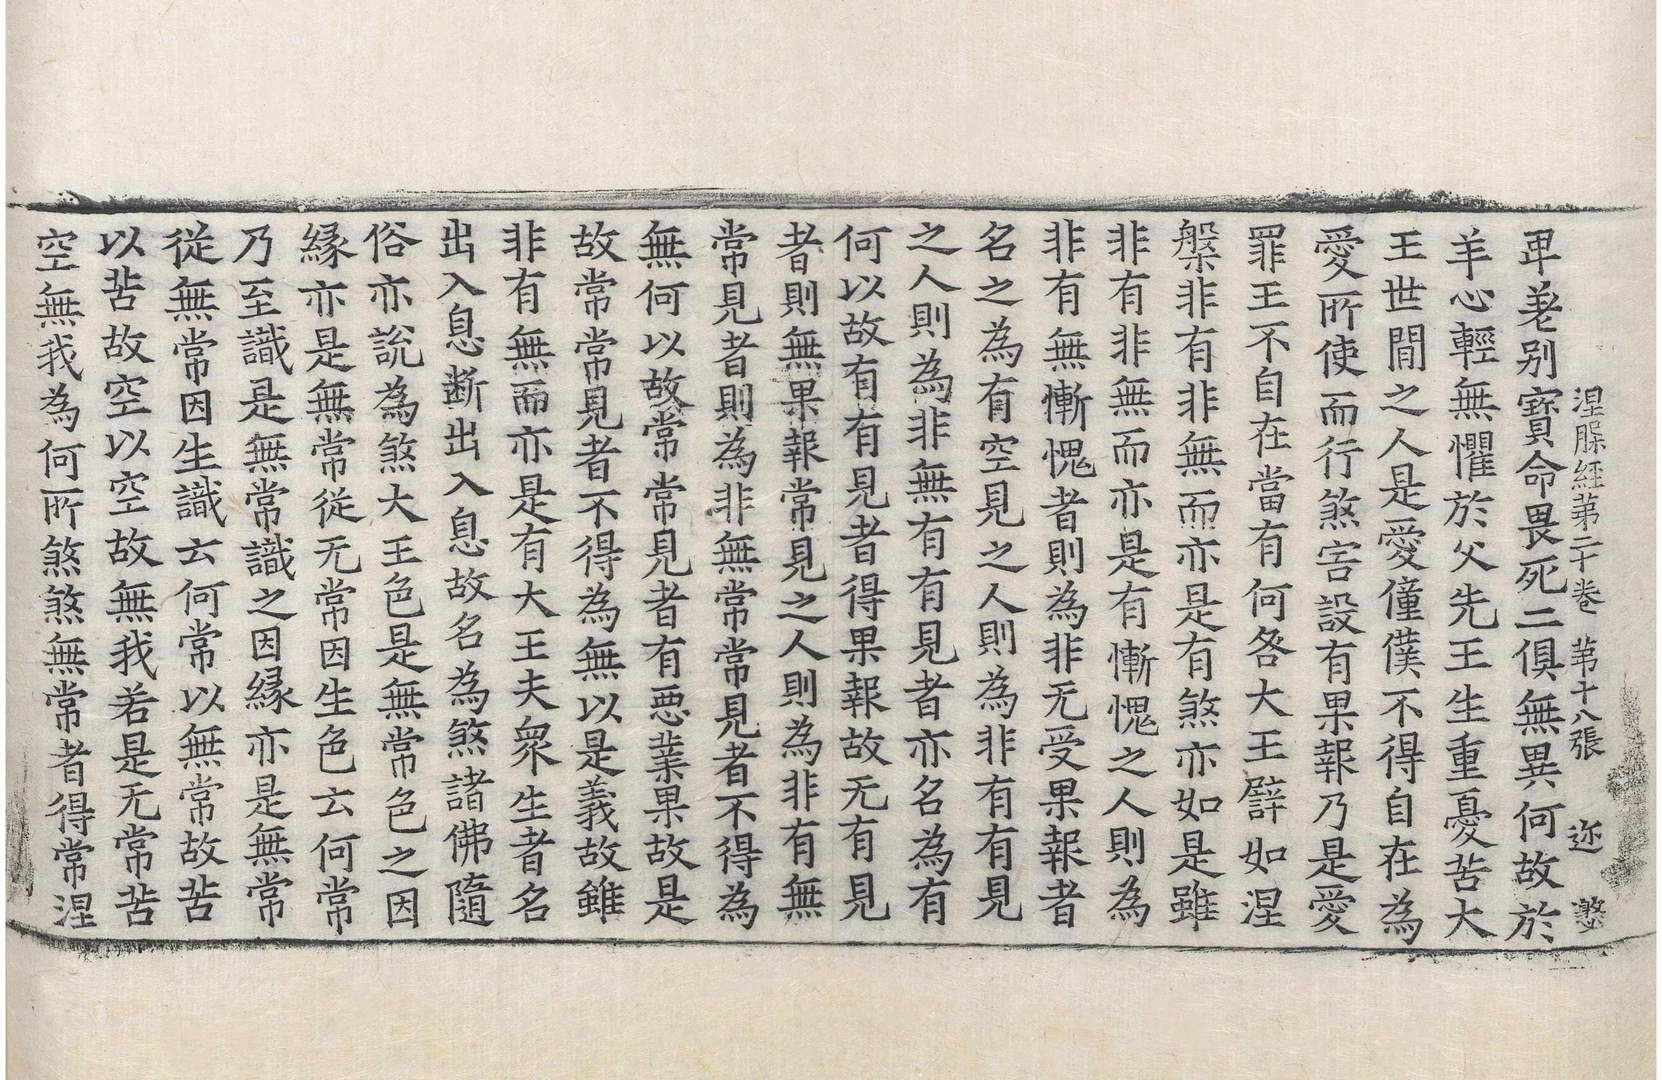 涅槃經第二十卷　第十八張　迩　㥽
卑差别寳命畏死二俱無異何故於
羊心輕無懼於父先王生重憂苦大
王世閒之人是愛僮僕不得自在為
愛所使而行煞害設有果報乃是愛
罪王不自在當有何咎大王譬如涅
槃非有非無而亦是有煞亦如是雖
非有非無而亦是有慚愧之人則為
非有無慚愧者則為非无受果報者
名之為有空見之人則為非有有見
之人則為非無有有見者亦名為有
何以故有有見者得果報故无有見
者則無果報常見之人則為非有無
常見者則為非無常常見者不得為
無何以故常常見者有惡業果故是
故常常見者不得為無以是義故雖
非有無而亦是有大王夫衆生者名
出入息断出入息故名為煞諸佛隨
俗亦說為煞大王色是無常色之因
緣亦是無常從无常因生色云何常
乃至識是無常識之因緣亦是無常
從無常因生識云何常以無常故苦
以苦故空以空故無我若是无常苦
空無我為何所煞煞無常者得常涅